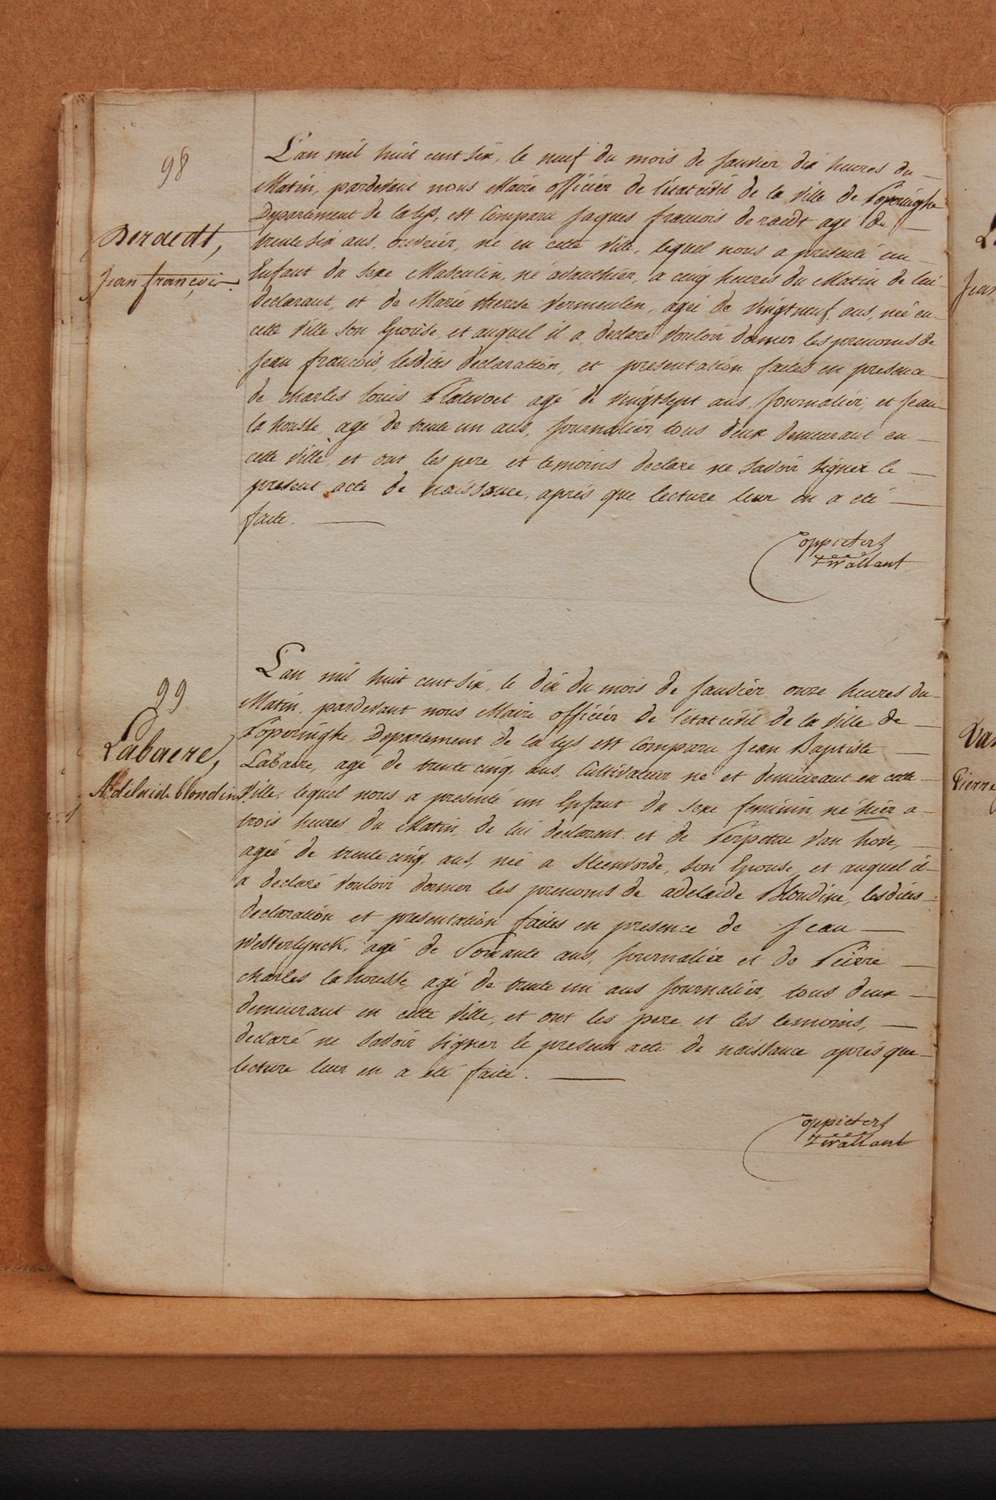 98
L'an mil huit cent six, le neuf du mois de Janvier dix heures du
Matin, pardevant nous Maire officier de l'état civil de la Ville de Poperinghe
Departement de la Lys, est Comparu Jaques francois Deraedt agé de
Beraedt,
trente six ans, ouvrier, né en cette Ville, lequel nous a presenté un
Jean françois.
Enfant du Sexe Masculin, né a cinq heures du Matin de lui
declarant, et de Marie therese Vermeulen, agée de vingt neuf ans, née en
cette Ville son Epouse, et auquel il a declaré vouloir donner les prenoms de
Jean francois, lesdites declaration, et presentation faites en presence
de charles Louis agé de vingt sept ans, Journalier, et Jean
la houste, agé de trente un ans, Journalier, tous deux demeurant en
cette Ville, et ont les pere, et temoins declaré ne savoir signer le
present acte de naissance, après que lecture leur en a eté
faite.
Coppieters
T'Wallant
99
L'an mil huit cent six, le dix du mois de Janvier onze heures du
Matin, pardevant nous Maire officier de l'etat civil de la Ville de
Poperinghe, Departement de la Lys est Comparu Jean Baptiste
Labaere,
Labaere, agé de trente cinq ans, Cultivateur né et demeurant en cette
Adelaide blondine
Ville, lequel nous a presenté un Enfant du Sexe feminin, né hier a
trois heures du Matin, de lui declarant et de Perpetue Van hove,
agée de trente cinq ans, née a Steenvorde, son Epouse, et auquel il
a declaré vouloir donner les prenoms de adelaide Blondine, lesdites
declaration et presentation faites en presence de Jean
Westerlynck, agé de Soixante ans, Journalier et de Pierre
charles la houste, agé de trente un ans Journalier, tous deux
demeurant en cette Ville, et ont les pere et les temoins,
declaré ne savoir signer le present acte de naissance après que
lecture leur en a eté faite.
Coppieters
T'Wallant